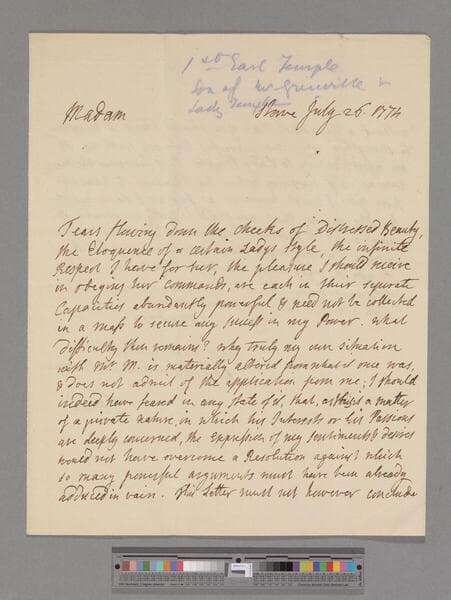 1st Earl Temple
Son of Mr Grenville &
Lady Temple
Madam
Stowe July 26. 1774
Tears flowing down the cheeks of Distressed Beauty,
the Eloquence of a certain Ladys style, the infinite
Respect I have for her, the pleasure I should receive
in obeying her Commands, are each in their separate
Capacities abundantly powerful & need not be collected
in a mass to secure any success in my Power. What
difficulty then remains? why truly my own situation
with Mr M. is materially altered from what it once was,
& does not admit of the application from me; I should
indeed have feared in any state of it, that, as this is a matter
of a private nature, in which his Interests or his Passions
are deeply concerned, the Expression of my Sentiments & desires
would not have overcome a Resolution against which
so many powerful arguments must have been already
adduced in vain. This Letter must not however conclude